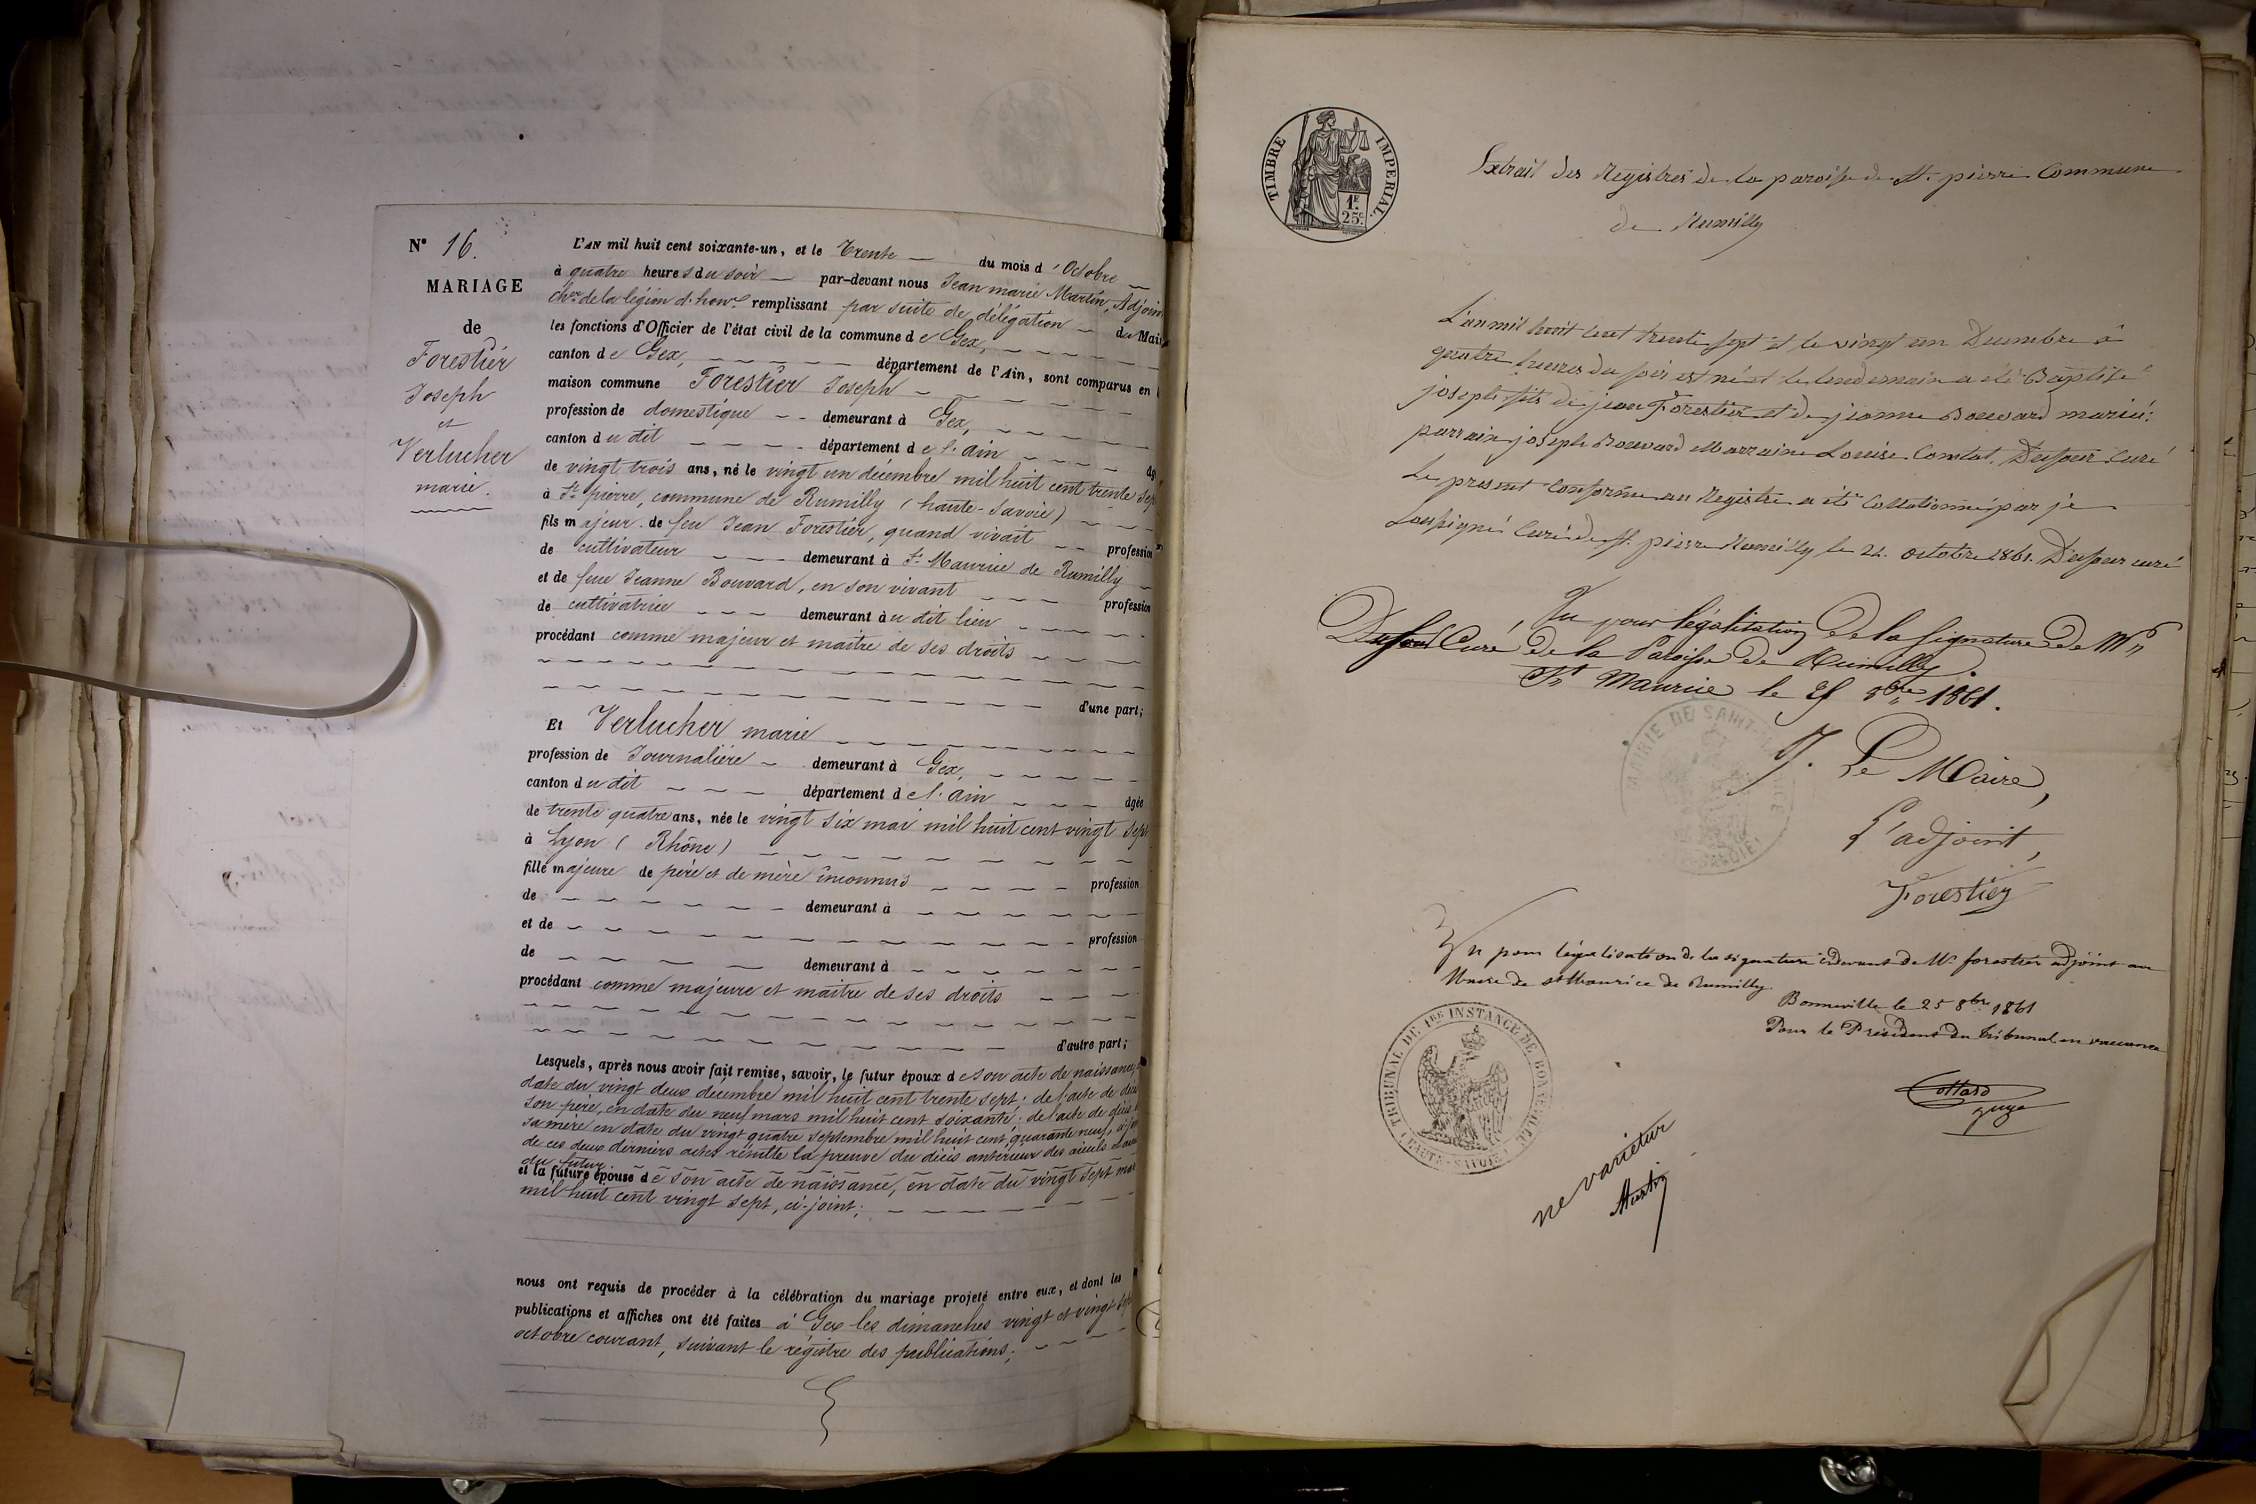 N° 16.
MARIAGE
de
Forestier
Joseph
et
Verlucher
marie.
L'AN mil huit cent soixante-un, et le Trente du mois d'Octobre
à quatre heures du soir par-devant nous Jean marie Martin, Adjoin
cher de la légion d'honr remplissant par suite de délégation de Mai
les fonctions d'Officier de l'état civil de la commune de Gex,
canton de Gex, département de l'Ain, sont comparus en
maison commune Forestier Joseph
profession de domestique demeurant à Gex,
canton du dit département de l'ain
de vingt trois ans, né le vingt un décembre mil huit cent trente sept
à St pierre, commune de Rumilly (haute-Savoie)
fils majeur de feu Jean Forestier, quand vivait profession
de cultivateur demeurant à St Maurice de Rumilly
et de feue Jeanne Bouvard, en son vivant profession
de cultivatrice demeurant au dit lieu
procédant comme majeur et maitre de ses droits
d'une part;
Et Verlucher marie
profession de Journalière demeurant à Gex,
canton du dit département de l'ain âgée
de trente quatre ans, née le vingt six mai mil huit cent vingt sept
à Lyon (Rhône)
fille majeure de père et de mère inconnus profession
de demeurant à
et de profession
de demeurant à
procédant comme majeure et maitre de ses droits
d'autre part;
Lesquels, après nous avoir fait remise, savoir, le futur époux de son acte de naissance,
date du vingt deux décembre mil huit cent trente sept; de l'acte de décès
son père, en date du neuf mars mil huit cent soixante; de l'acte de décès
sa mère en date du vingt quatre septembre mil huit cent quarante neuf,
de ces deux derniers actes résulte la preuve du décès antérieur des aïeuls
du futur
et la future épouse de son acte de naissance, en date du vingt sept mai
mil huit cent vingt sept, ci-joint;
nous ont requis de procéder à la célébration du mariage projeté entre eux, et dont les
publications et affiches ont été faites à Gex les dimanches vingt et vingt sept
octobre courant, suivant le régistre des publications;
TIMBRE IMPERIAL
1F
25c
Extrait des Registres de la paroisse de St. pierre Commune
de Rumilly
L'an mil huit cent trente sept et le vingt un Decembre à
quatre heures du soir est né et le lendemain a été Baptisé
joseph fils de jean Forestier et de jeanne Bouvard mariés:
parrain joseph Bouvard Marraine Louise Comtat, Dufour curé
Le present conforme au Registre a été collationné par je
soussigné Curé de St. pierre Rumilly le 24. octobre 1861. Dufour curé
Vu pour légalisation de la signature de Mr
Dufour Curé de la Paroisse de Rumilly.
St Maurice le 25 8bre 1861.
MAIRIE DE SAINT-MAURICE
P. Le Maire,
L'adjoint,
Forestier
Vu pour légalisation de la signature cidevant de Mr forestier adjoint au
Maire de st Maurice de Rumilly
Bonneville le 25 8bre 1861
Pour le Président du tribunal en vacance
TRIBUNAL DE 1RE INSTANCE DE BONNEVILLE (HAUTE-SAVOIE)
Cottard
juge
ne varietur
Martin